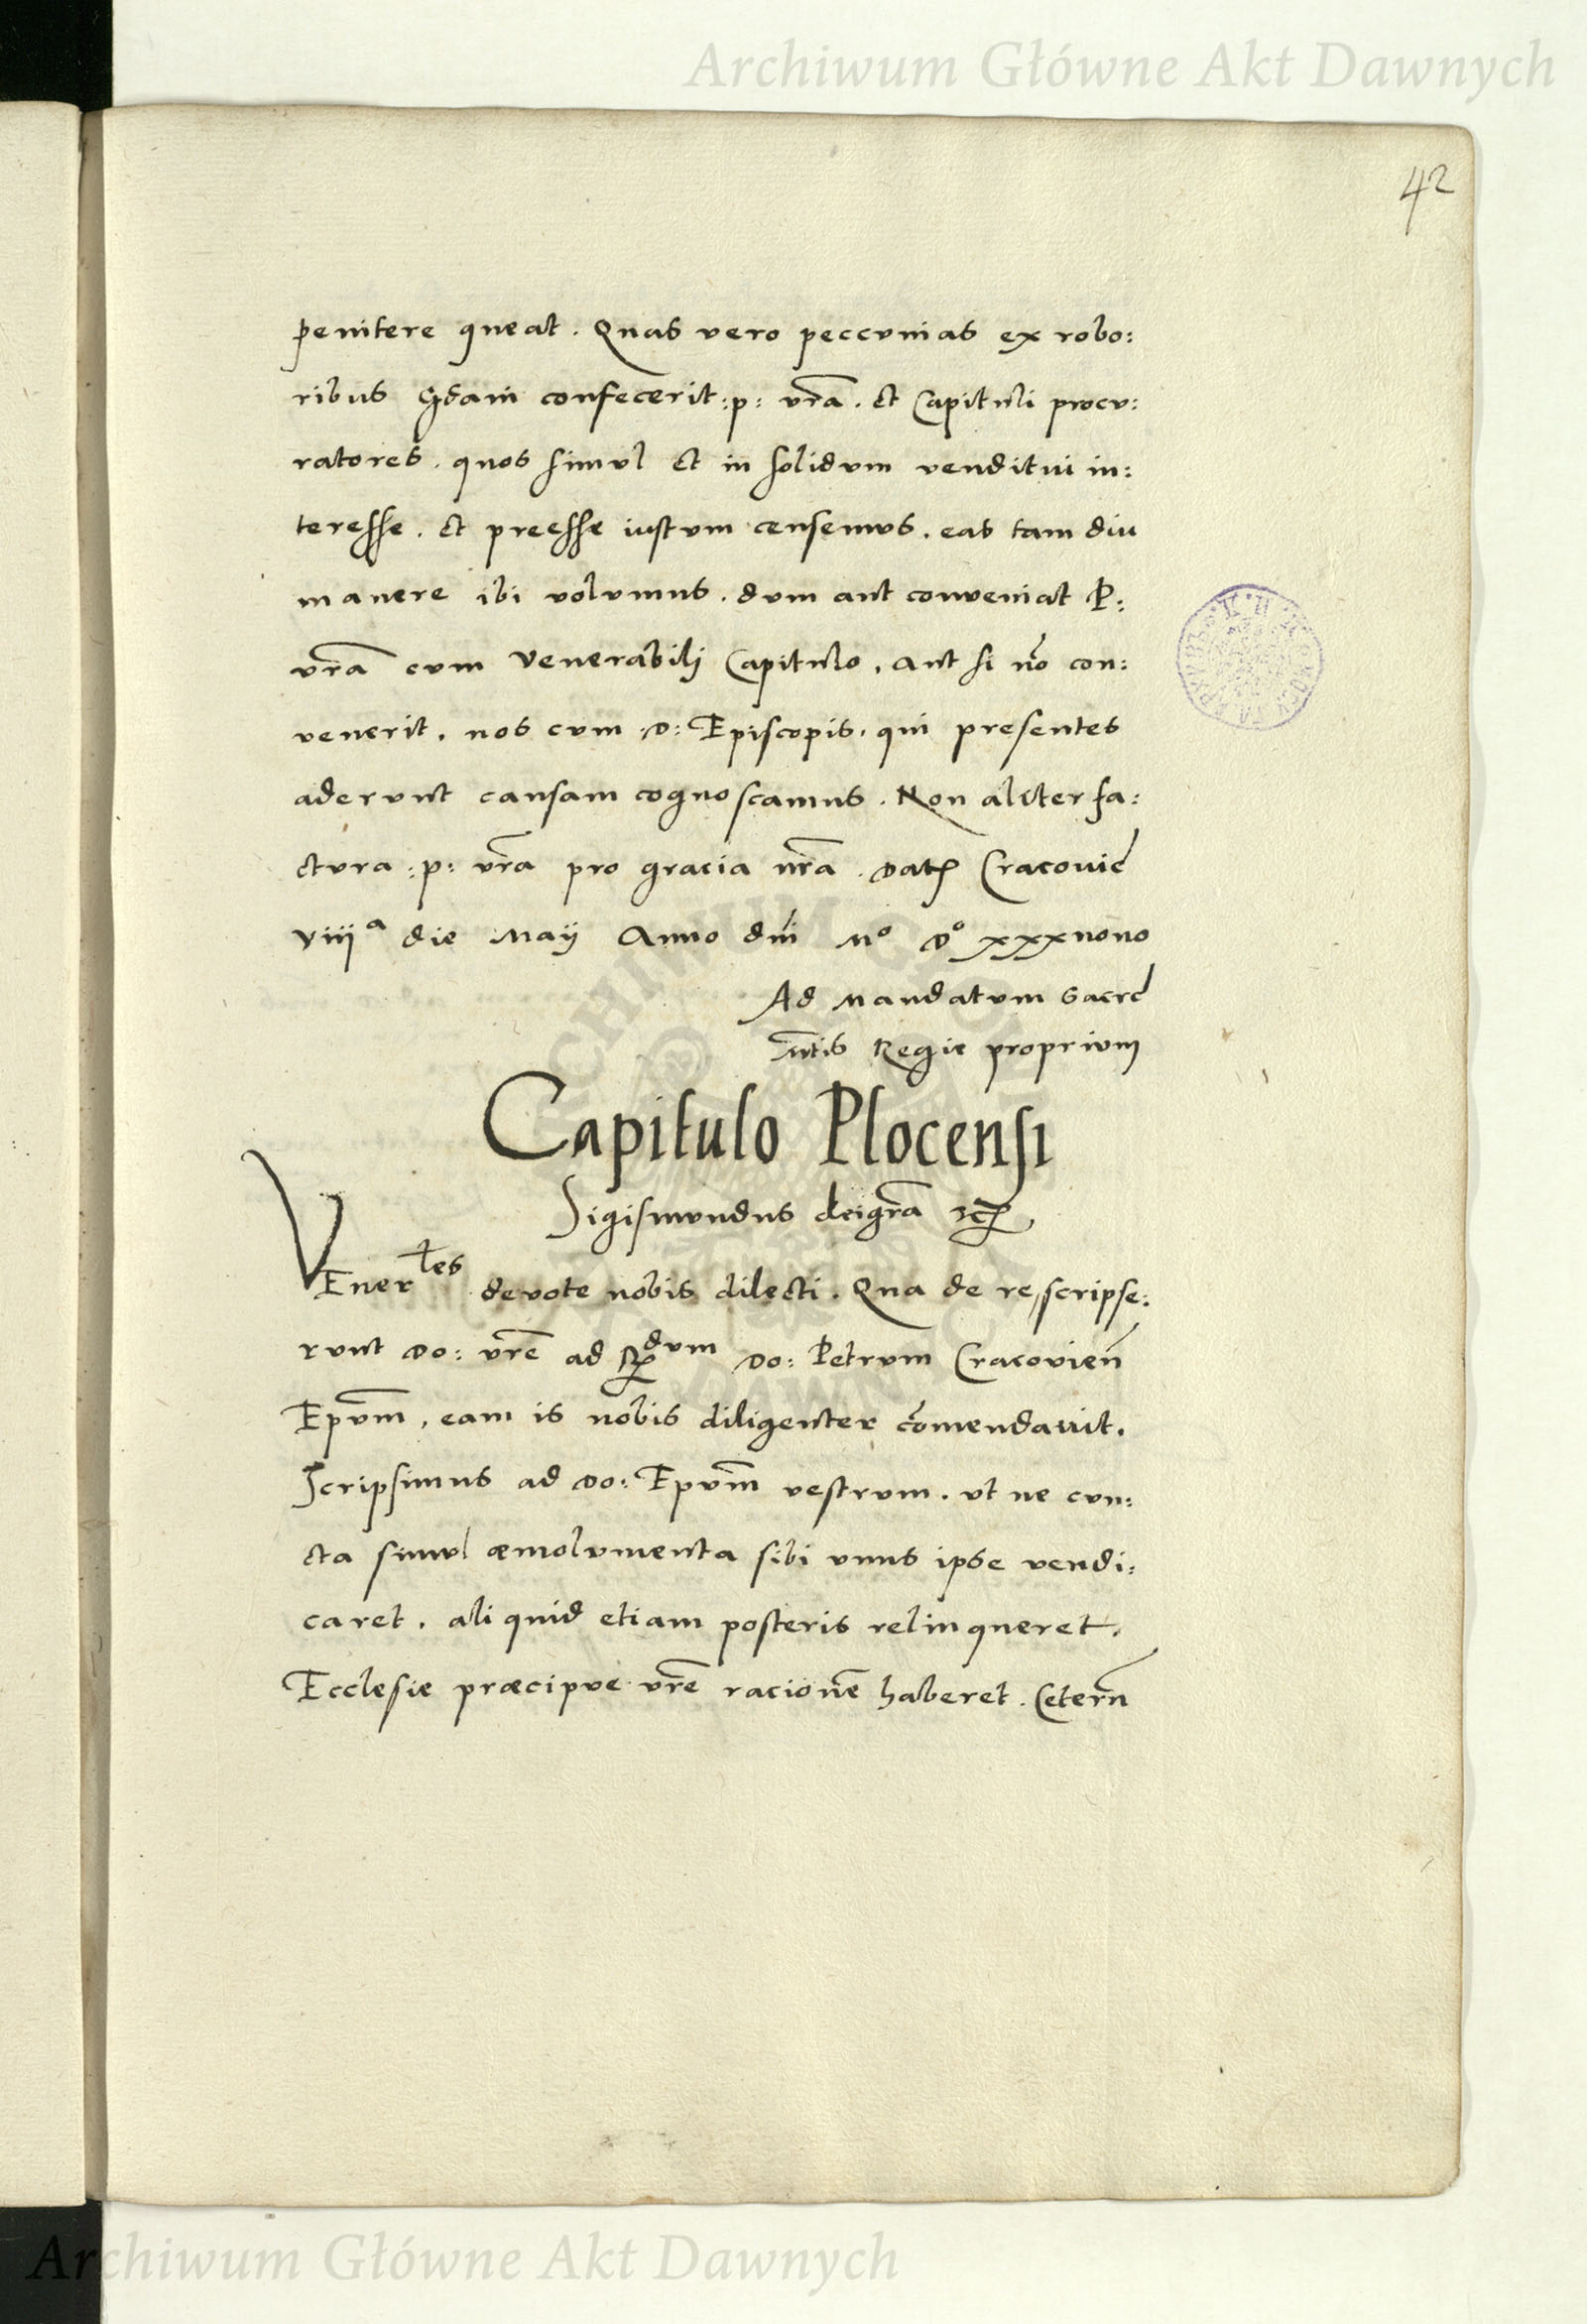 Archiwum Główne Akt Dawnych
42
penitere queat. Quas vero peccunias ex robo:
ribus Gdani confecerit :p: vr̃a. et Capituli procu:
ratores. quos simul et in solidum venditui in:
teresse. et preesse iustum censemus. eas tam diu
manere ibi volumus. dum aut conveniat P:
vr̃a cum Venerabilj Capitulo. aut si nõ con:
venerit. nos cum D: Episcopis. qui presentes
aderunt causam cognoscamus. Non aliter fa:
ctura :p: vr̃a pro gracia nr̃a. Dat Cracovie
viijᵃ die Maij Anno dñi Mº Dº xxxnono
Ad Mandatum Sacre
Mtis Regie proprium
Capitulo Plocensi
Sigismundus dei gr̃a
VEnerles devote nobis dilecti. Qua de re scripse:
runt Do: vr̃e ad Rdum Do: Petrum Cracovień
Epũm, eam is nobis diligenter cõmendavit.
Scripsimus ad Do: Epũm vestrum. ut ne cun:
cta simul æmolumenta sibi unus ipse vendi:
caret. aliquid etiam posteris relinqueret.
Ecclesie præcipue vr̃e racionẽ haberet. Ceterũ
Archiwum Główne Akt Dawnych